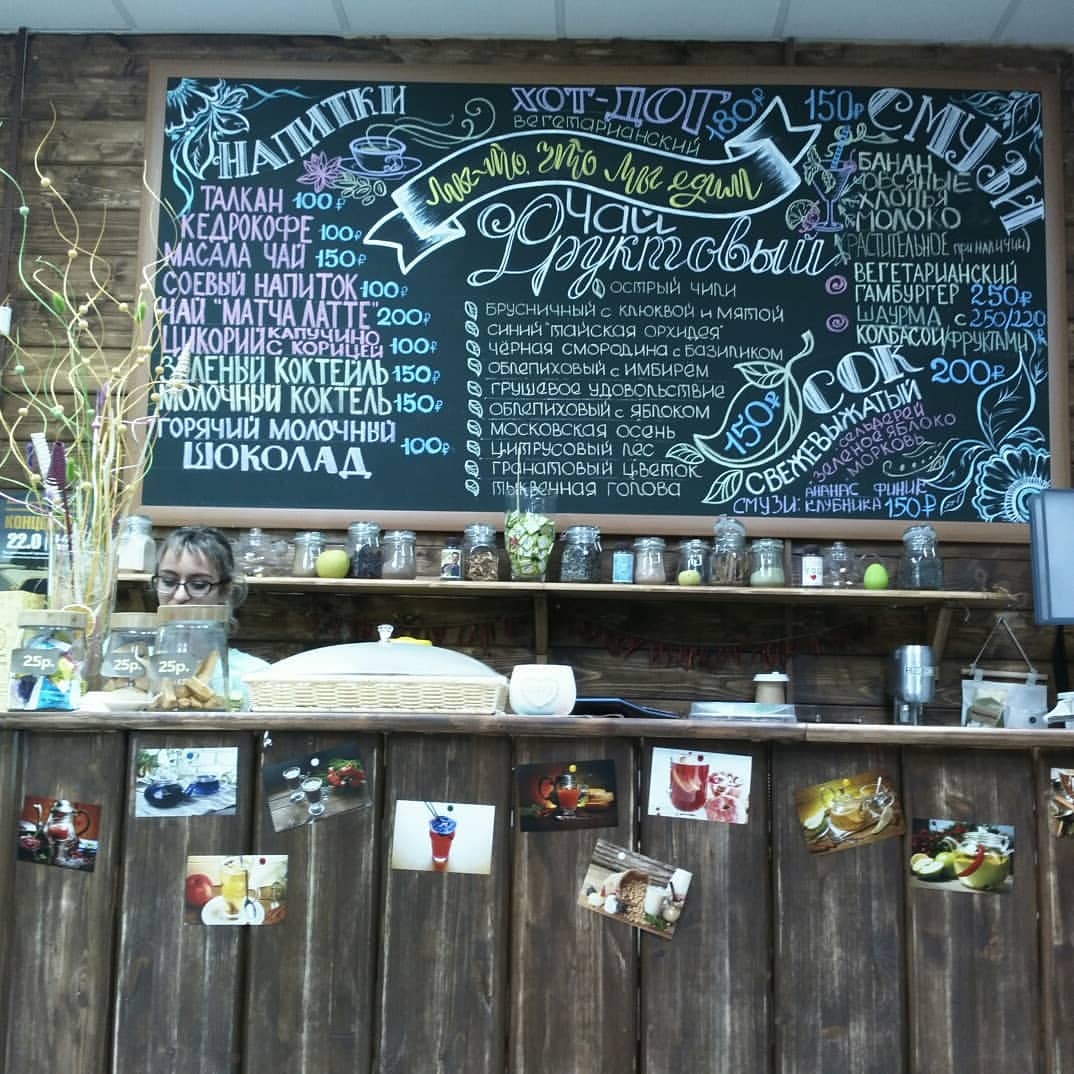 НАПИТКИ
ТАЛКАН 100₽
КЕДРОКОФЕ 100₽
МАСАЛА ЧАЙ 150₽
СОЕВЫЙ НАПИТОК 100₽
ЧАЙ "МАТЧА ЛАТТЕ" 200₽
ЦИКОРИЙ КАПУЧИНО
С КОРИЦЕЙ 100₽
ЗЕЛЕНЫЙ КОКТЕЙЛЬ 150₽
МОЛОЧНЫЙ КОКТЕЛЬ 150₽
ГОРЯЧИЙ МОЛОЧНЫЙ
ШОКОЛАД 100₽
ХОТ-ДОГ 180₽
ВЕГЕТАРИАНСКИЙ
Мы-то, что мы едим
ЧАЙ
Фруктовый
ОСТРЫЙ ЧИЛИ
БРУСНИЧНЫЙ С КЛЮКВОЙ И МЯТОЙ
СИНИЙ "ТАЙСКАЯ ОРХИДЕЯ"
ЧЁРНАЯ СМОРОДИНА С БАЗИЛИКОМ
ОБЛЕПИХОВЫЙ С ИМБИРЕМ
ГРУШЕВОЕ УДОВОЛЬСТВИЕ
ОБЛЕПИХОВЫЙ С ЯБЛОКОМ
МОСКОВСКАЯ ОСЕНЬ
ЦИТРУСОВЫЙ ЛЕС
ГРАНАТОВЫЙ ЦВЕТОК
ТЫКВЕННАЯ ГОЛОВА
150₽ СМУЗИ
БАНАН
ОВСЯНЫЕ
ХЛОПЬЯ
МОЛОКО
(РАСТИТЕЛЬНОЕ при наличии)
ВЕГЕТАРИАНСКИЙ
ГАМБУРГЕР 250₽
ШАУРМА С 250/220
КОЛБАСОЙ/ФРУКТАМИ
150₽
СОК 200₽
СВЕЖЕВЫЖАТЫЙ
сельдерей
зеленое яблоко
морковь
СМУЗИ: АНАНАС ФИНИК
КЛУБНИКА 150₽
22.0
25р.
25р.
25р.